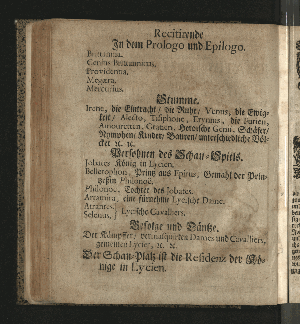 Recitirende
In dem Prologo und Epilogo.
Britannia.
Genius Britannicus.
Providentia.
Megæra.
Mercurius.
Stumme.
Irene, die Eintracht / die Ruhe / Venus, die Ewig-
keit / Alecto, Tisiphone, Erynnis, die Furien,
Amouretten, Gratien, Heroische Genii, Schäfer/
Nymphen/ Kinder/ Bauren/ unterschiedliche Völ-
cker ꝛc. ꝛc.
Persohnen des Schau-Spiels.
Jobates König in Lycien.
Bellerophon, Printz aus Epirus, Gemahl der Prin-
zeßin Philonoe.
Philonoe, Tochter des Jobates.
Arramira, eine fürnehme Lycische Dame.
Atrantes,
Selenus,
Lycische Cavalliers.
Gefolge und Däntze.
Der Kämpffer/ vermasquirten Dames und Cavalliers,
gemeinen Lycier, ꝛc. ꝛc.
Der Schau-Platz ist die Residenz der Kö-
nige in Lycien.